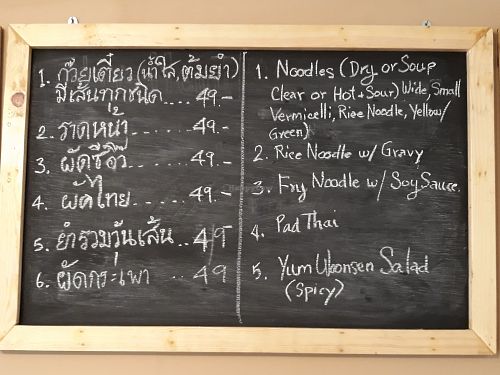 1. ก๋วยเตี๋ยว (น้ำใส, ต้มยำ)
มีเส้นทุกชนิด.... 49.-
2. ราดหน้า....... 49.-
3. ผัดซีอิ๊ว .... 49.-
4. ผัดไทย .... 49.-
5. ยำรวมวุ้นเส้น .. 49
6. ผัดกระเพา ... 49
1. Noodles (Dry or Soup
Clear or Hot & Sour) Wide, Small
Vermicelli, Rice Noodle, Yellow/
Green)
2. Rice Noodle w/ Gravy
3. Fry Noodle w/ Soy Sauce.
4. Pad Thai
5. Yum Woonsen Salad
(Spicy)